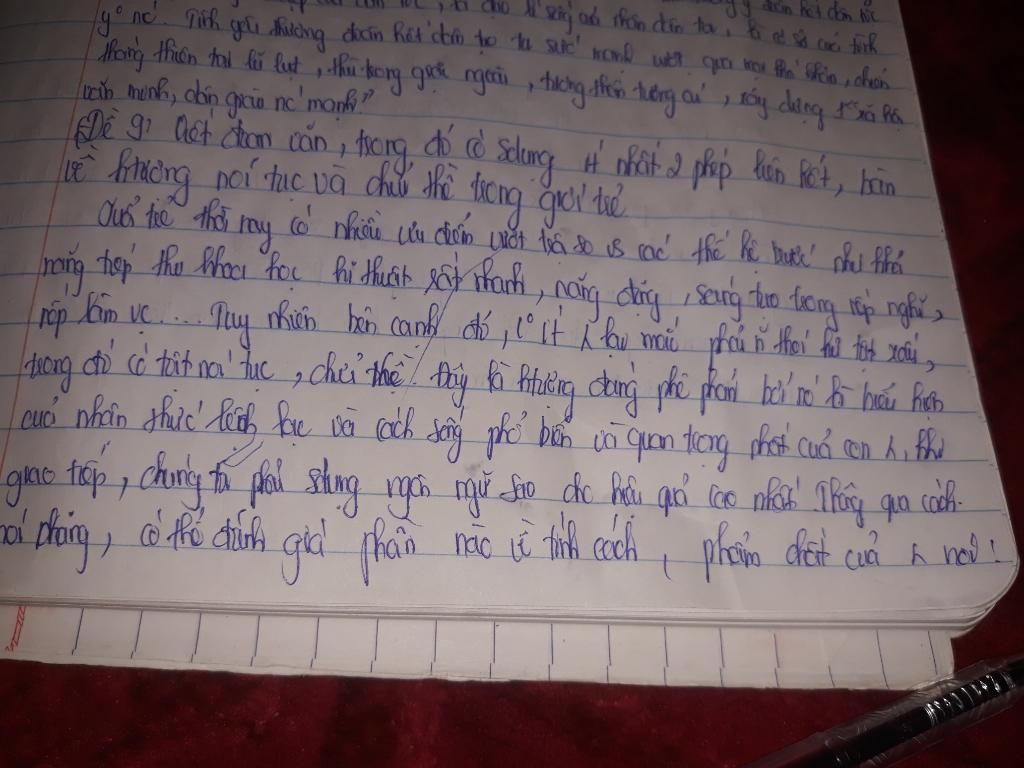 yº nc'. Tình yêu thương đoàn kết dân tộc ta sức mạnh vượt qua mọi khó khăn, chiến
thắng thiên tai lũ lụt, thù trong giặc ngoài, tương thân tương ái, xây dựng xã hội
văn minh, dân giàu nc' mạnh"
Đề 9: Viết đoạn văn, trong đó có sdụng ít nhất 2 phép liên kết, bàn
về htượng nói tục và chửi thề trong giới trẻ
Giới trẻ thời nay có nhiều ưu điểm vượt trội so vs các thế hệ trước như khả
năng tiếp thu khoa học kĩ thuật rất nhanh, năng động, sáng tạo trong nếp nghĩ,
nếp làm vc .... Tuy nhiên bên cạnh đó, ít lại mắc phải n~ thói hư tật xấu,
trong đó có tật nói tục, chửi thề. Đây là htượng đáng phê phán bởi nó là biểu hiện
của nhận thức lệch lạc và cách sống phổ biến và quan trọng của con khi
giao tiếp, chúng ta phải sdụng ngôn ngữ sao cho hiệu quả cao nhất. Thông qua cách
nói năng, có thể đánh giá phần nào về tính cách, phẩm chất của nói.